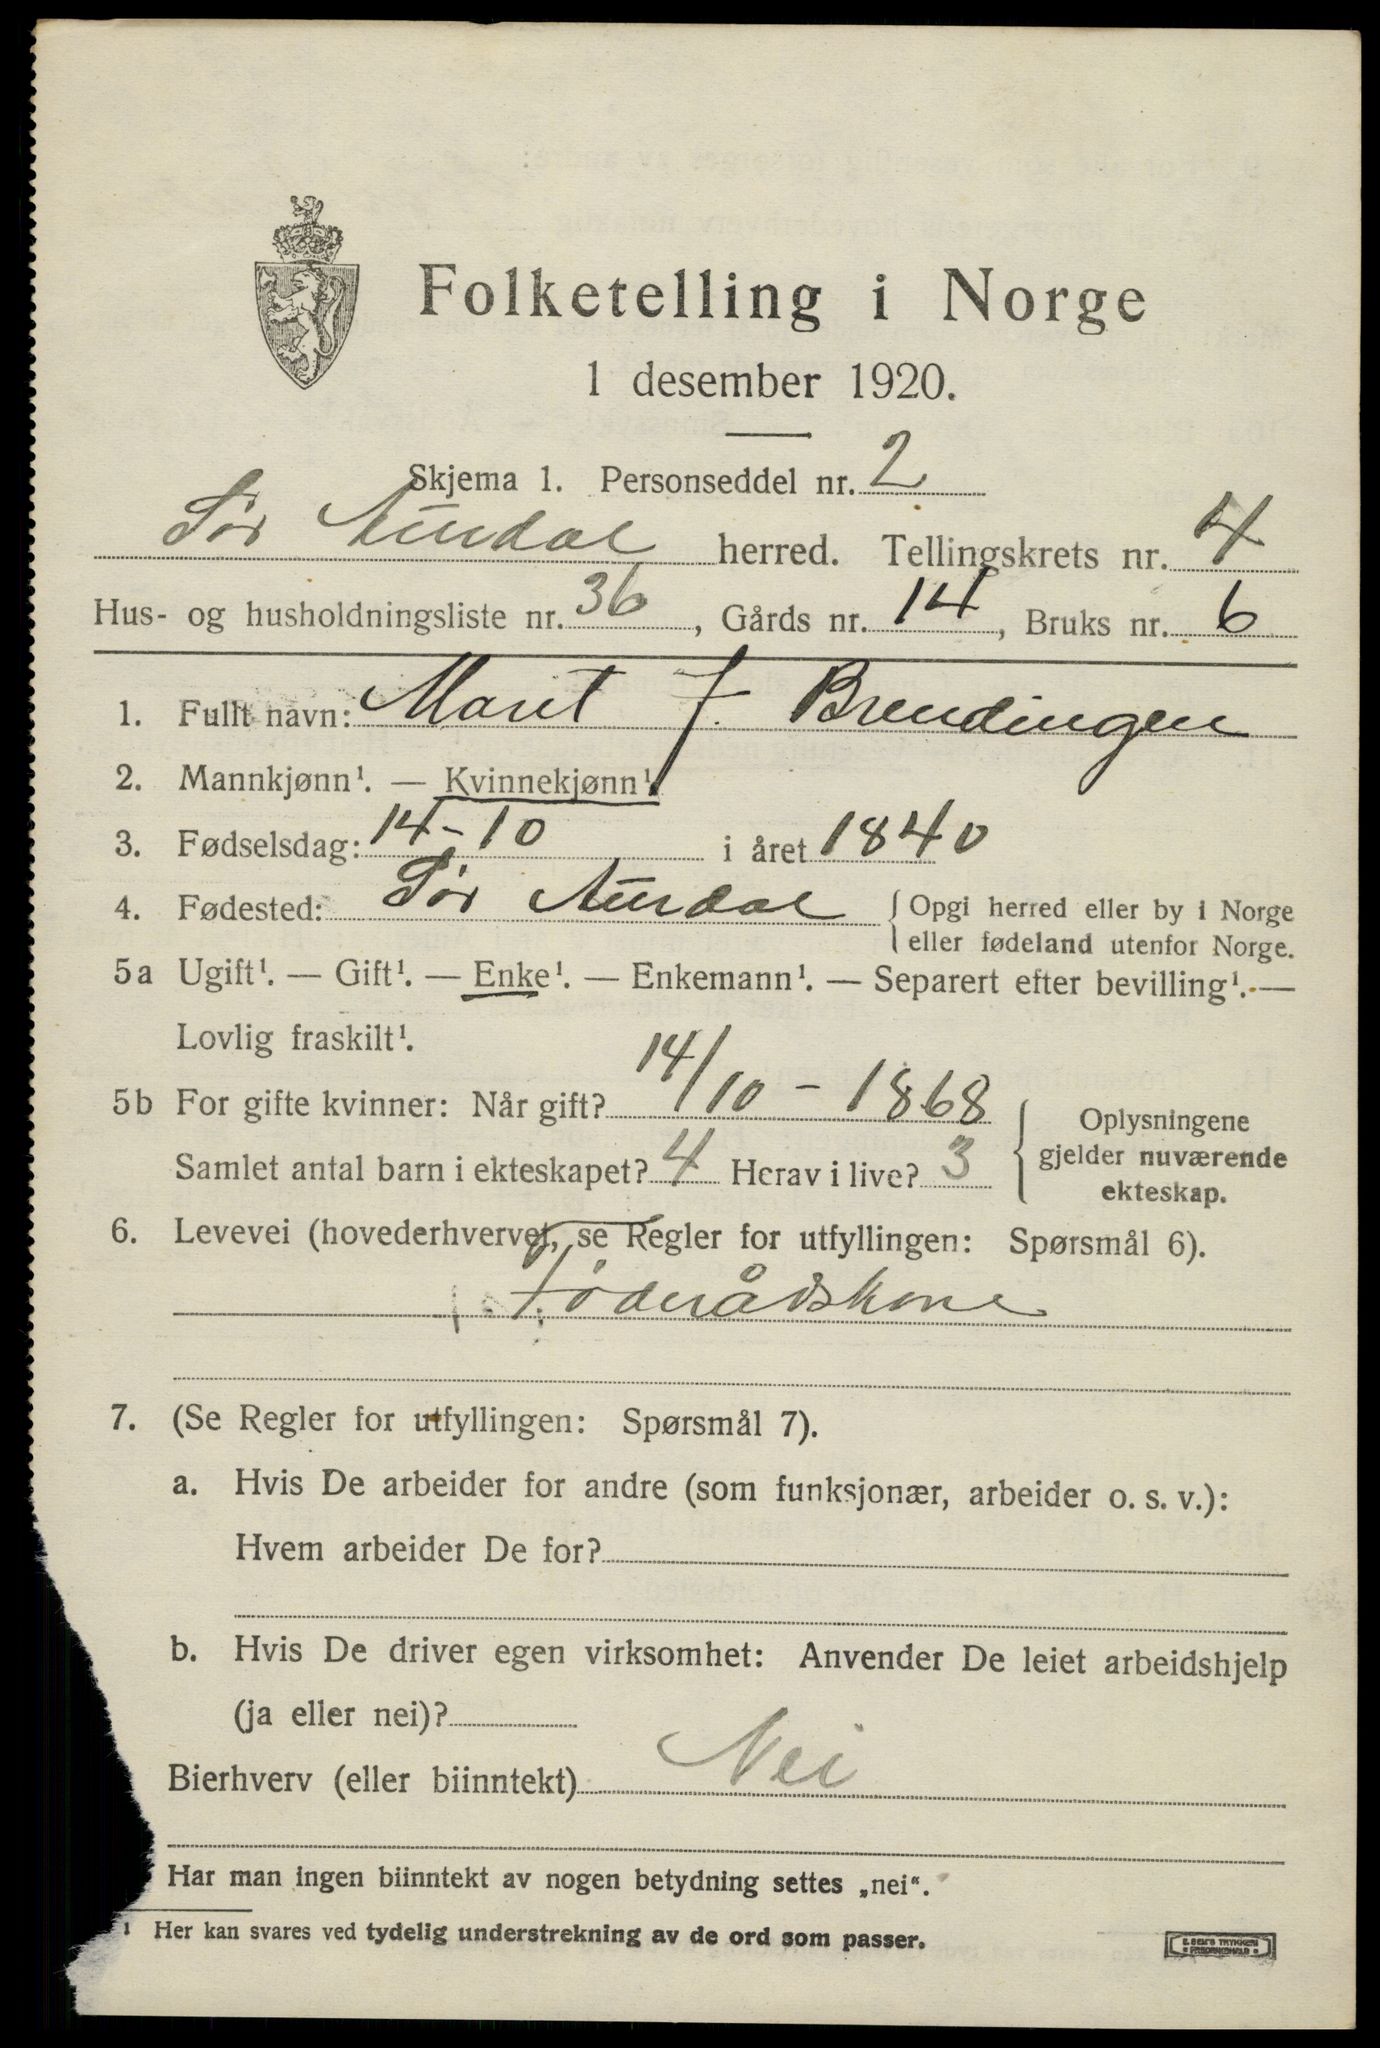 Folketelling i Norge
1 desember 1920.
Skjema 1. Personseddel nr. 2
Sør Aurdal herred. Tellingskrets nr. 4
Hus- og husholdningsliste nr. 36, Gårds nr. 14, Bruks nr. 6
1. Fullt navn: Marit J. Brendingen
2. Mannkjønn¹. — Kvinnekjønn¹.
3. Fødselsdag: 14-10 i året 1840
4. Fødested: Sør Aurdal { Opgi herred eller by i Norge
eller fødeland utenfor Norge.
5a Ugift¹. — Gift¹. — Enke¹. — Enkemann¹. — Separert efter bevilling¹. —
Lovlig fraskilt¹.
5b For gifte kvinner: Når gift? 14/10 - 1868
Samlet antal barn i ekteskapet? 4 Herav i live? 3
{ Oplysningene
gjelder nuværende
ekteskap.
6. Levevei (hovederhvervet, se Regler for utfyllingen: Spørsmål 6).
Føderådskone
7. (Se Regler for utfyllingen: Spørsmål 7).
a. Hvis De arbeider for andre (som funksjonær, arbeider o. s. v.):
Hvem arbeider De for?
b. Hvis De driver egen virksomhet: Anvender De leiet arbeidshjelp
(ja eller nei)?
Bierhverv (eller biinntekt) Nei
Har man ingen biinntekt av nogen betydning settes „nei“.
¹ Her kan svares ved tydelig understrekning av de ord som passer.